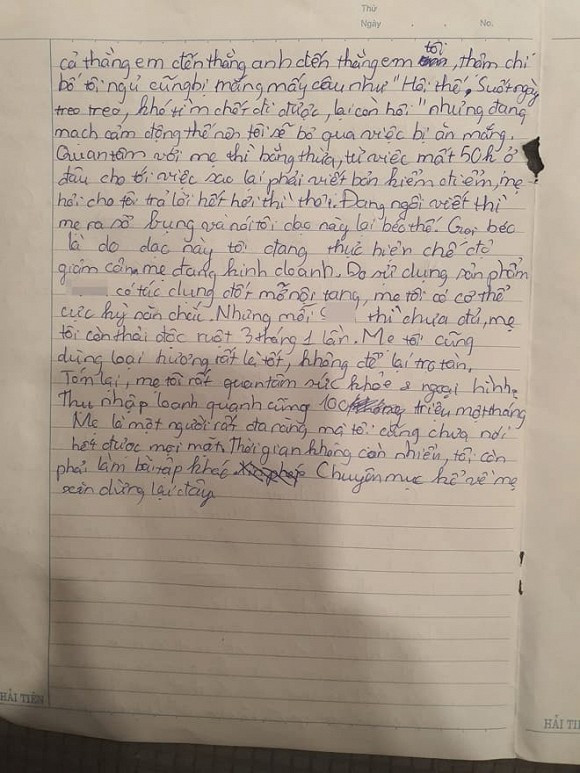 Thứ
Ngày
No.
cả thằng em đến thằng anh đến thằng em tôi, thậm chí
bố tôi ngủ cũng bị mắng mấy câu như "Hôi thế, Suốt ngày
treo treo, khó tìm chết đi được, lại còn hôi" nhưng đang
mạch cảm động thế nên tôi sẽ bỏ qua việc bị ăn mắng.
Quan tâm với mẹ thì bằng thừa, từ việc mất 50k ở
đâu cho tới việc sao lại phải viết bản kiểm điểm, mẹ
hỏi cho tôi trả lời hết hơi thì thôi. Đang ngồi viết thì
mẹ ra sờ bụng và nói tôi dạo này lại béo thế. Gọi béo
là do dạo này tôi đang thực hiện chế độ
giảm cân mẹ đang kinh doanh. Do sử dụng sản phẩm
có tác dụng đốt mỡ nội tạng, mẹ tôi có cơ thể
cực kỳ săn chắc. Nhưng mỗi S thì chưa đủ, mẹ
tôi còn thải độc ruột 3 tháng 1 lần. Mẹ tôi cũng
dùng loại hương tốt lẽ tốt, không để lại tro tàn.
Tóm lại, mẹ tôi rất quan tâm sức khỏe & ngoại hình.
Thu nhập loanh quanh cũng 100 triệu một tháng
Mẹ là một người rất đa năng mà tôi cũng chưa nói
hết được mọi mặt. Thời gian không còn nhiều, tôi còn
phải làm bài tập khác Chuyên mục kể về mẹ
xin dừng lại đây
HẢI TIẾN
HẢI TI